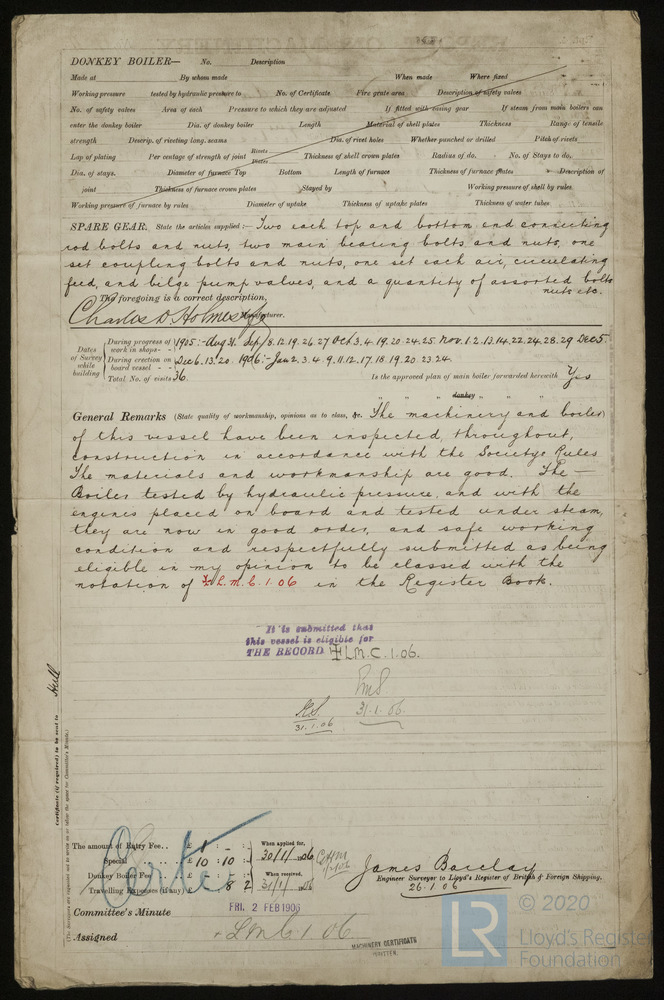 DONKEY BOILER— No. Description
Made at By whom made When made Where fixed
Working pressure tested by hydraulic pressure to No. of Certificate Fire grate area Description of safety valves
No. of safety valves Area of each Pressure to which they are adjusted If fitted with easing gear If steam from main boilers can
enter the donkey boiler Dia. of donkey boiler Length Material of shell plates Thickness Range of tensile
strength Descrip. of riveting long. seams Dia. of rivet holes Whether punched or drilled Pitch of rivets
Lap of plating Per centage of strength of joint Rivets Plates Thickness of shell crown plates Radius of do. No. of Stays to do.
Dia. of stays. Diameter of furnace Top Bottom Length of furnace Thickness of furnace plates Description of
joint Thickness of furnace crown plates Stayed by Working pressure of shell by rules
Working pressure of furnace by rules Diameter of uptake Thickness of uptake plates Thickness of water tubes
SPARE GEAR. State the articles supplied:— Two each top and bottom end connecting
rod bolts and nuts, two main bearing bolts and nuts, one
set coupling bolts and nuts, one set each air, circulating
feed, and bilge pump valves, and a quantity of assorted bolts
nuts etc.
The foregoing is a correct description,
Charles D. Holmes & Co Manufacturer.
Dates of Survey while building
During progress of work in shops - - 1905:- Aug 31. Sep 8. 12. 19. 26. 27 Oct 3. 4. 19. 20. 24. 25. Nov. 1. 2. 13. 14. 22. 24. 28. 29 Dec 5.
During erection on board vessel - - - Dec 6. 13. 20. 1906:- Jan 2. 3. 4. 9. 11. 12. 17. 18. 19. 20 23. 24.
Total No. of visits 36. Is the approved plan of main boiler forwarded herewith Yes
" " " donkey " " "
General Remarks (State quality of workmanship, opinions as to class, &c. The machinery and boiler
of this vessel have been inspected, throughout,
construction in accordance with the Societys Rules
The materials and workmanship are good. The —
Boiler tested by hydraulic pressure, and with the
engines placed on board and tested under steam,
they are now in good order, and safe working
condition and respectfully submitted as being
eligible in my opinion to be classed with the
notation of ✠ L.M.C. 1.06 in the Register Book.
It is submitted that
this vessel is eligible for
THE RECORD ✠ LMC. 1.06.
31.1.06.
31.1.06
Certificate (if required) to be sent to Hull
The amount of Entry Fee.. £ 1 : - : When applied for,
Special .. £ 10 : 10 : 30/1/1906
Donkey Boiler Fee .. £ : : When received,
Travelling Expenses (if any) £ : 8 : 2 31/1/1906
James Barclay
Engineer Surveyor to Lloyd's Register of British & Foreign Shipping.
26.1.06
Committee's Minute FRI. 2 FEB 1906
Assigned + LMC. 1.06
MACHINERY CERTIFICATE
WRITTEN.
LR © 2020
Lloyd's Register
Foundation